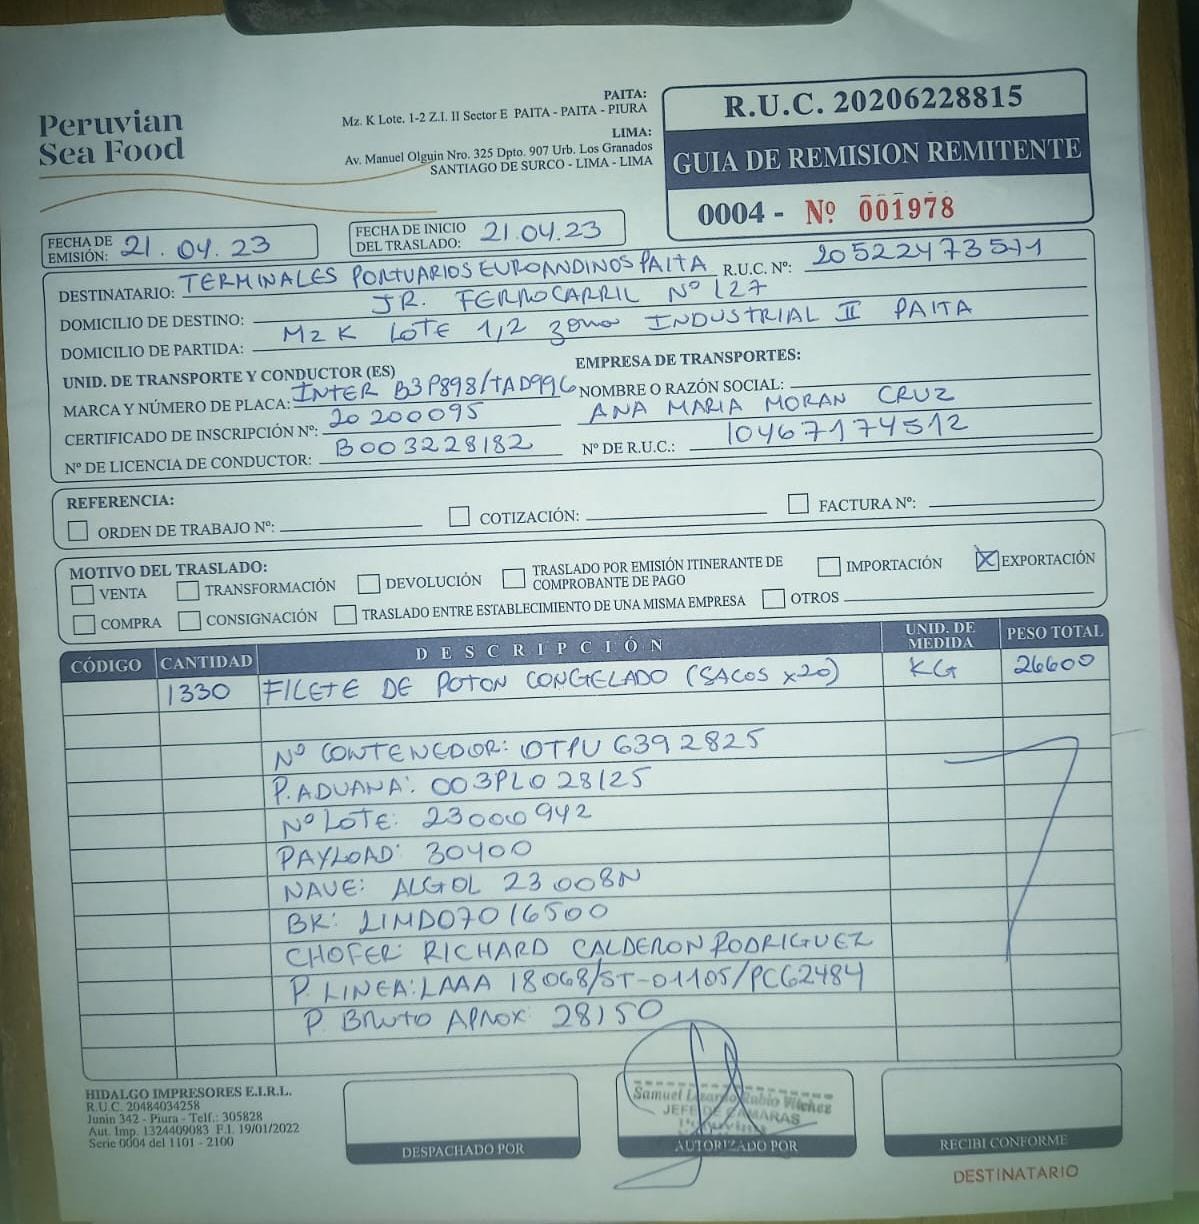 Peruvian
Sea Food
PAITA:
Mz. K Lote. 1-2 Z.I. II Sector E PAITA - PAITA - PIURA
LIMA:
Av. Manuel Olguin Nro. 325 Dpto. 907 Urb. Los Granados
SANTIAGO DE SURCO - LIMA - LIMA
R.U.C. 20206228815
GUIA DE REMISION REMITENTE
0004 - Nº 001978
FECHA DE EMISIÓN: 21.04.23
FECHA DE INICIO DEL TRASLADO: 21.04.23
DESTINATARIO: TERMINALES PORTUARIOS EUROANDINOS PAITA R.U.C. Nº: 20522473571
DOMICILIO DE DESTINO: JR. FERROCARRIL Nº 127
DOMICILIO DE PARTIDA: MZ K LOTE 1,2 zona INDUSTRIAL II PAITA
UNID. DE TRANSPORTE Y CONDUCTOR (ES)
EMPRESA DE TRANSPORTES:
MARCA Y NÚMERO DE PLACA: INTER B3P898/TAD996
NOMBRE O RAZÓN SOCIAL:
ANA MARIA MORAN CRUZ
CERTIFICADO DE INSCRIPCIÓN Nº: 20200095
Nº DE LICENCIA DE CONDUCTOR: B003228182
Nº DE R.U.C.: 10467174512
REFERENCIA:
ORDEN DE TRABAJO Nº:
COTIZACIÓN:
FACTURA Nº:
MOTIVO DEL TRASLADO:
VENTA
TRANSFORMACIÓN
DEVOLUCIÓN
TRASLADO POR EMISIÓN ITINERANTE DE COMPROBANTE DE PAGO
IMPORTACIÓN
X EXPORTACIÓN
COMPRA
CONSIGNACIÓN
TRASLADO ENTRE ESTABLECIMIENTO DE UNA MISMA EMPRESA
OTROS
CÓDIGO CANTIDAD DESCRIPCIÓN UNID. DE MEDIDA PESO TOTAL
1330 FILETE DE POTON CONGELADO (SACOS x20) KG 26600
Nº CONTENEDOR: OTPU 6392825
P. ADUANA: 003PLO 28125
Nº LOTE: 23000942
PAYLOAD: 30400
NAVE: ALGOL 23 008N
BK: LIMD07016500
CHOFER: RICHARD CALDERON RODRIGUEZ
P. LINEA: LAAA 18068/ST-01105/PC62484
P. BRUTO APROX: 28150
HIDALGO IMPRESORES E.I.R.L.
R.U.C. 20484034258
Junin 342 - Piura - Telf.: 305828
Aut. Imp. 1324409083 F.I. 19/01/2022
Serie 0004 del 1101 - 2100
DESPACHADO POR
Samuel Lizardo Rubio Vilchez
JEFE DE CAMARAS
AUTORIZADO POR
RECIBI CONFORME
DESTINATARIO